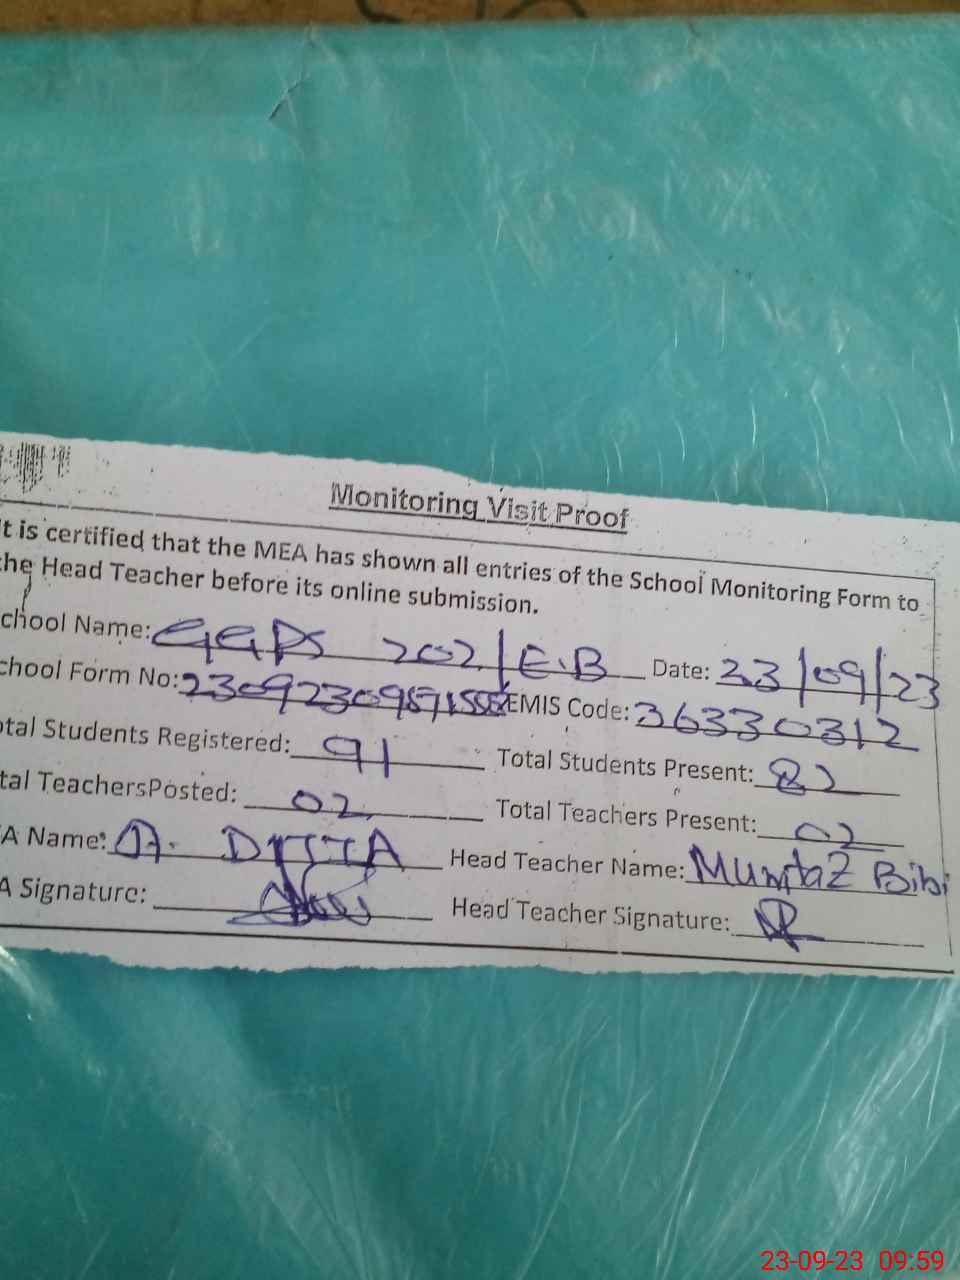 Monitoring Visit Proof
It is certified that the MEA has shown all entries of the School Monitoring Form to
the Head Teacher before its online submission.
chool Name: GGPS 202/E.B Date: 23/09/23
chool Form No: EMIS Code: 36330312
otal Students Registered: 91 Total Students Present: 82
tal TeachersPosted: 02 Total Teachers Present: 02
A Name: A. DITTA Head Teacher Name: Mumtaz Bibi
A Signature: Head Teacher Signature:
23-09-23 09:59